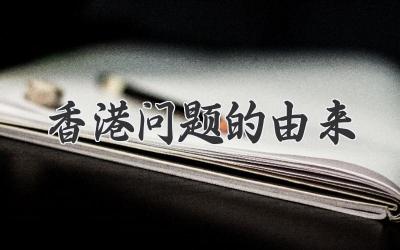 香港问题的由来